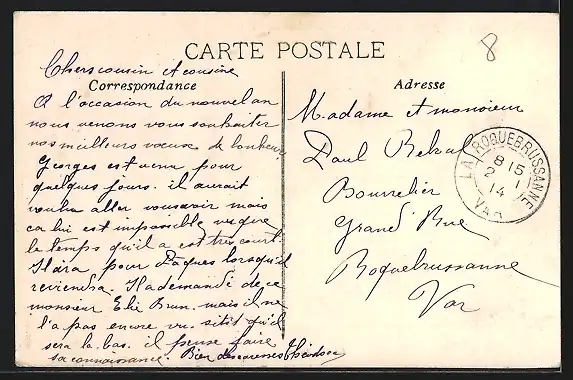 CARTE POSTALE
8
Correspondance
Adresse
Chers cousin et cousine
A l'occasion du nouvel an
nous venons vous souhaiter
nos meilleurs voeux de bonheur.
Georges est venu pour
quelques jours. il aurait
voulu aller vous voir mais
ca lui est impossible vu que
le temps qu'il a est très court.
Il ira pour Pâques lorsqu'il
reviendra. Il a demandé de ce
monsieur Elie Brun. mais il ne
l'a pas encore vu. sitôt qu'il
sera la bas. il pense faire
sa connaissance. Bien des
Madame et monsieur
Paul
Bourrelier
Grand' Rue
Roquebrussanne
Var
LA ROQUEBRUSSANNE
8 15
2 - 1
14
VAR